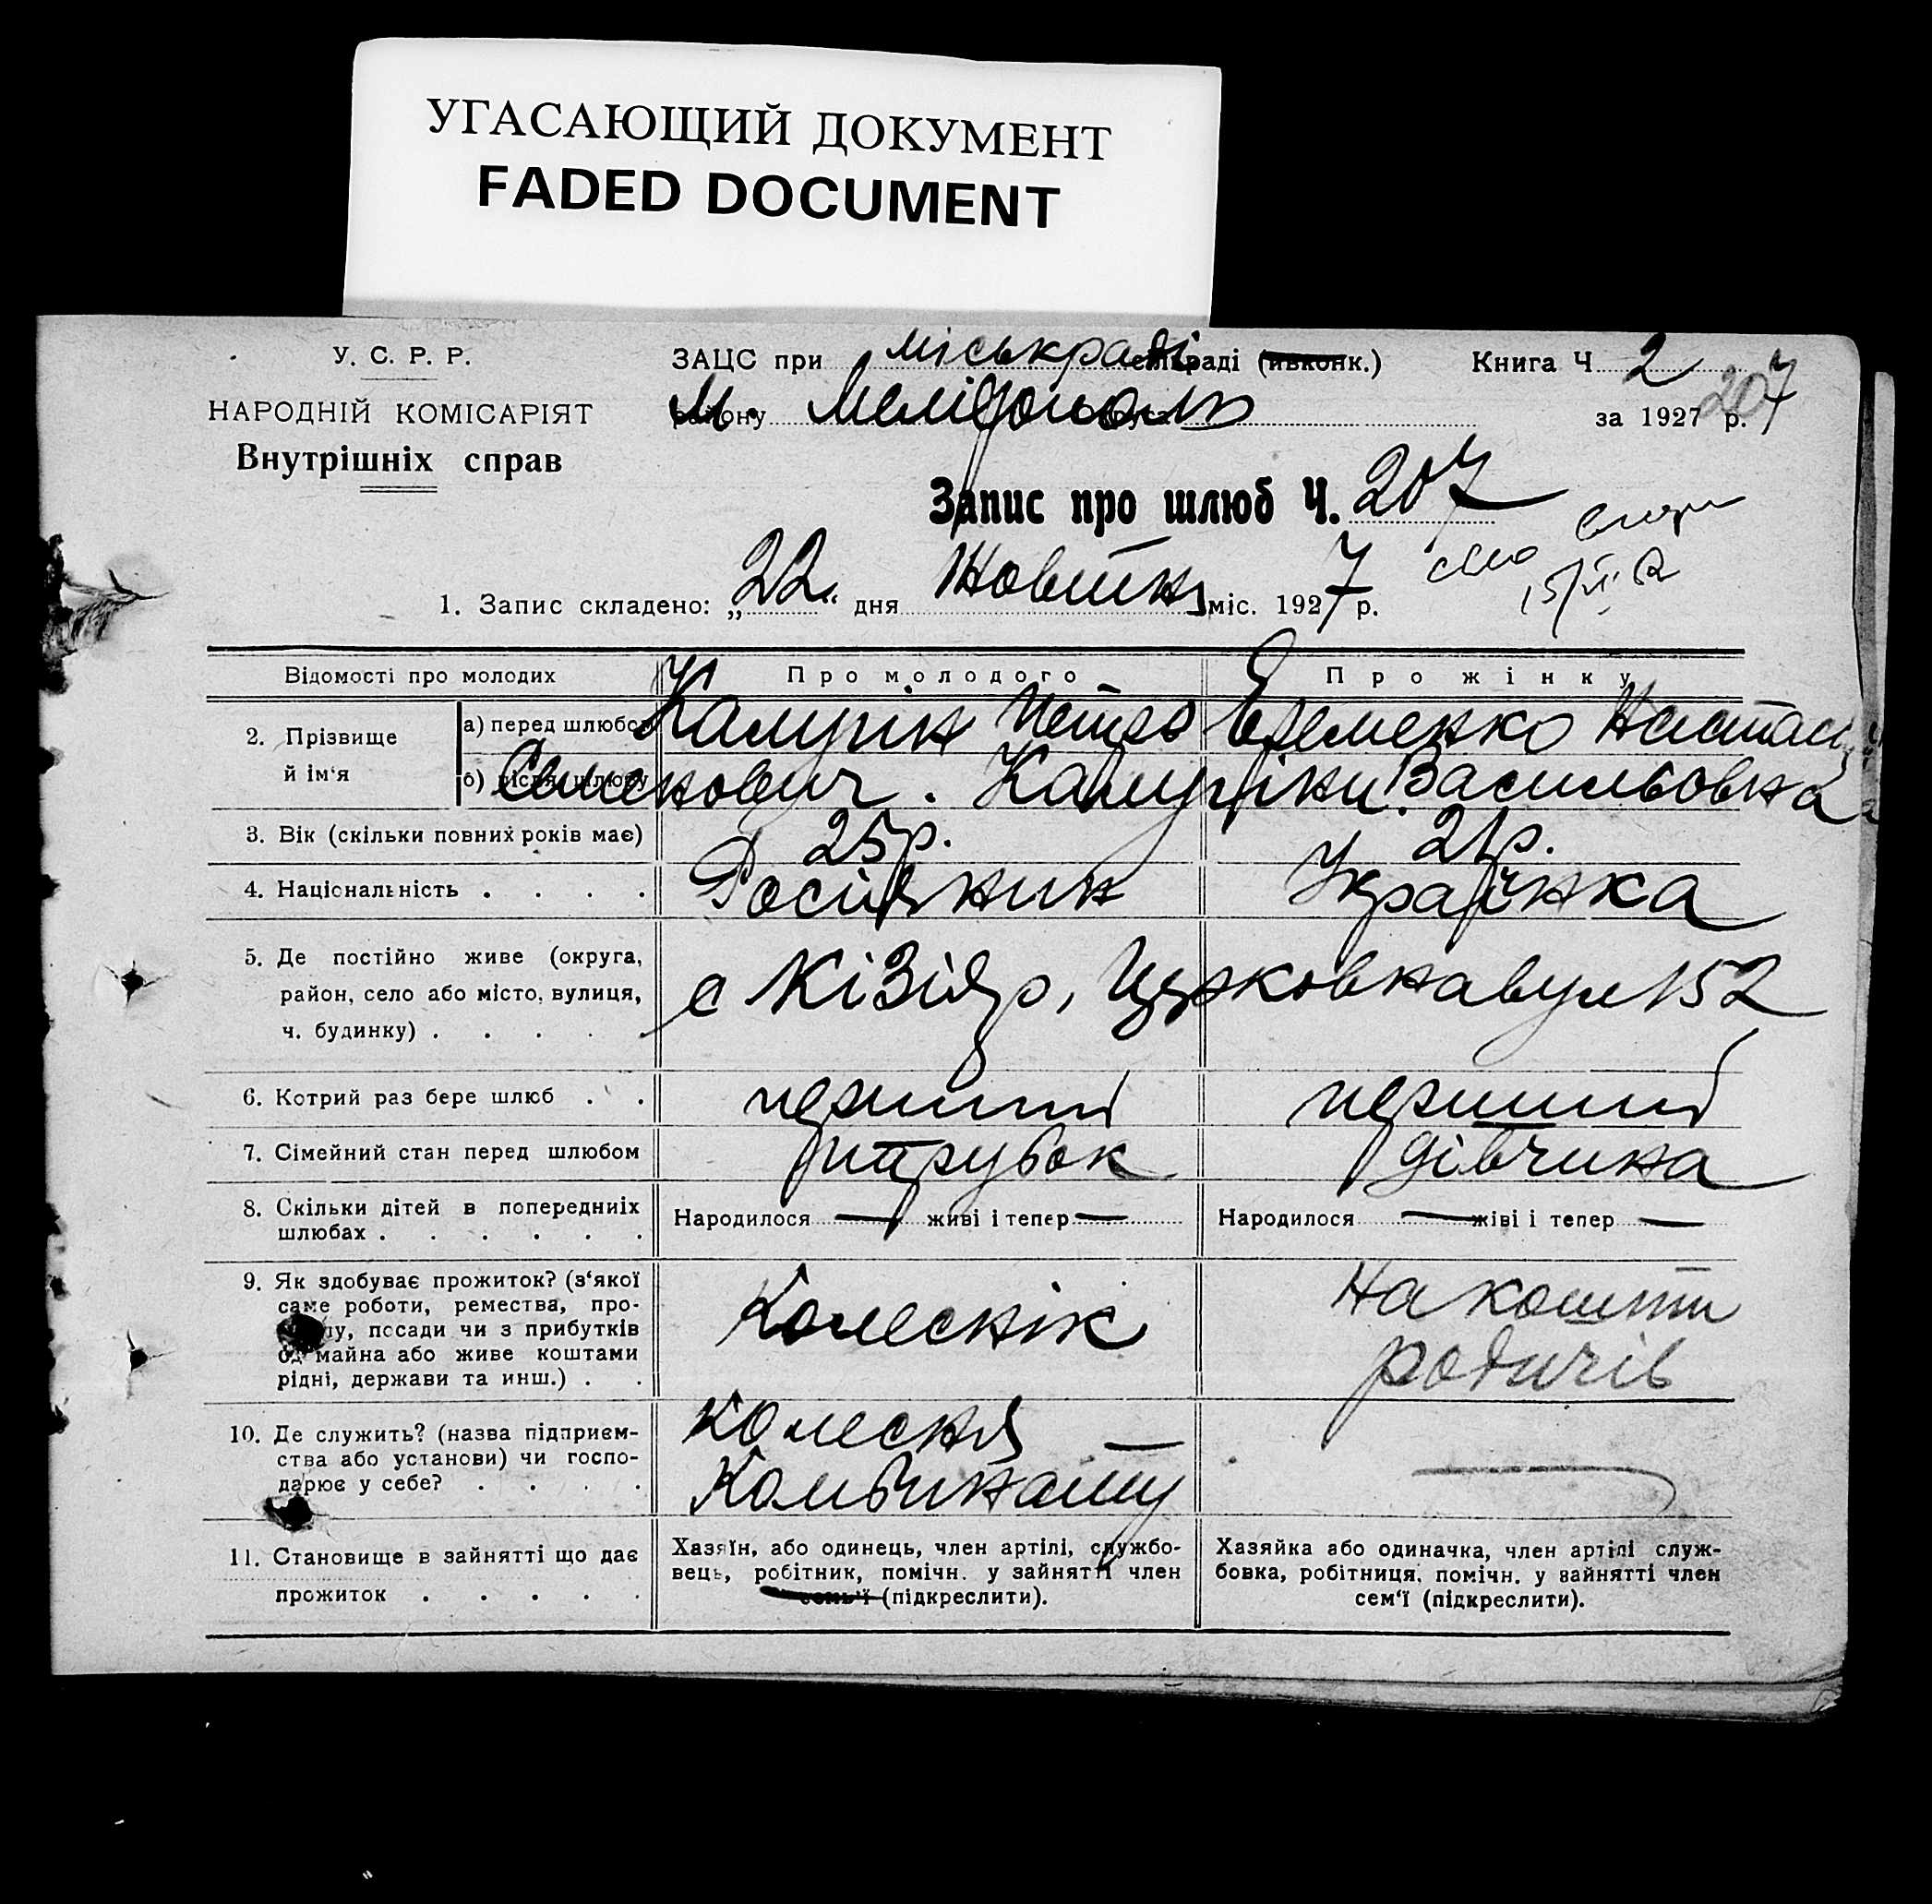 УГАСАЮЩИЙ ДОКУМЕНТ
FADED DOCUMENT
У. С. Р. Р.
НАРОДНІЙ КОМІСАРІЯТ
Внутрішніх справ
ЗАЦС при міськраді сільраді (виконк.)
району М. Мелідополь
Книга Ч 2
за 1927 р.
207
Запис про шлюб Ч. 207
1. Запис складено: „22“ дня Жовтня міс. 1927 р.
Відомості про молодих
Про молодого
Про жінку
2. Прізвище й ім‘я
а) перед шлюбом
Калугін Петро
Єременко Настасія
б) після шлюбу
Калугіни.
Васильовна
3. Вік (скільки повних років має)
25р.
21р.
4. Національність . . . .
Росіянин
Українка
5. Де постійно живе (округа,
район, село або місто, вулиця,
ч. будинку) . . . . .
с Кізіяр, Церковна вул 152
6. Котрий раз бере шлюб . .
перший
перший
7. Сімейний стан перед шлюбом
парубок
дівчина
8. Скільки дітей в попередніх
шлюбах . . . . . .
Народилося — живі і тепер —
Народилося — живі і тепер —
9. Як здобуває прожиток? (з‘якої
саме роботи, ремества, про-
мислу, посади чи з прибутків
од майна або живе коштами
рідні, держави та инш.) . .
Колеснік
На кошти
родичів
10. Де служить? (назва підприєм-
ства або установи) чи госпо-
дарює у себе? . . . .
колесня —
Комбинату
—
11. Становище в зайнятті що дає
прожиток . . . . .
Хазяїн, або одинець, член артілі, службо-
вець, робітник, помічн. у зайнятті член
сем‘ї (підкреслити).
Хазяйка або одиначка, член артілі служ-
бовка, робітниця, помічн. у зайнятті член
сем‘ї (підкреслити).